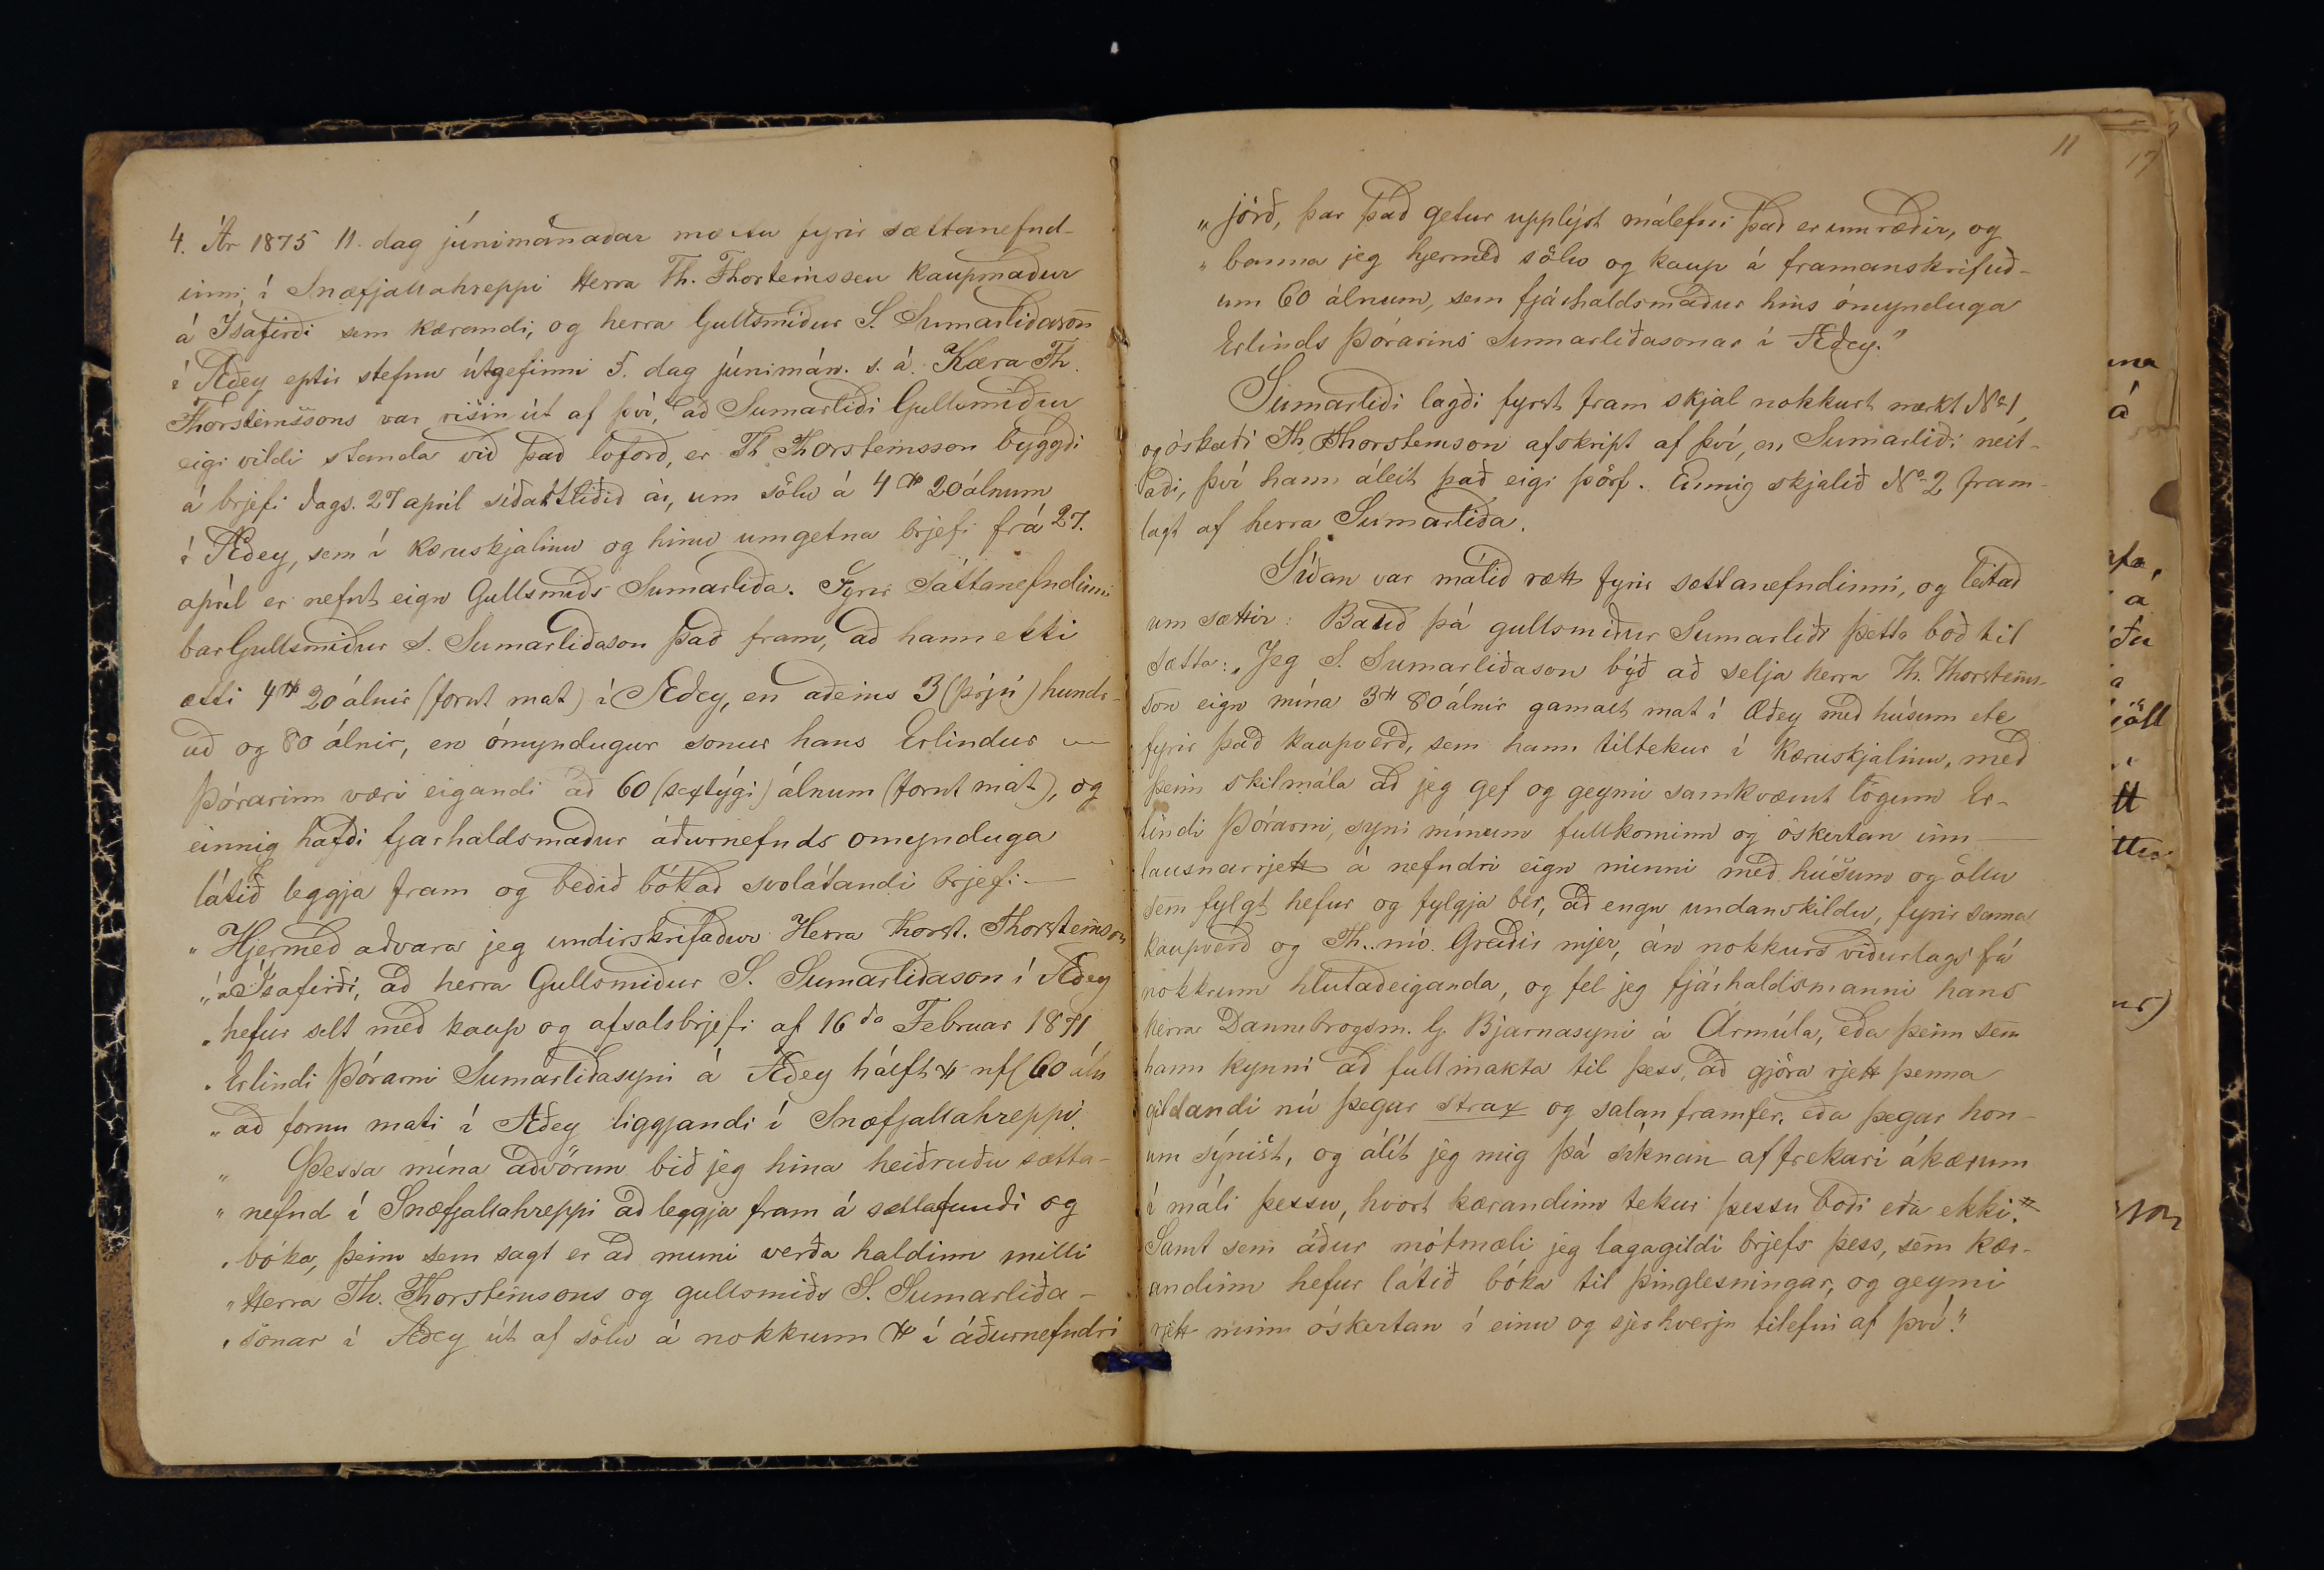 4. Ár 1875 11. dag júnimánaðar mættu fyrir sættanefnd-
inni í Snæfjallahreppi Herra Th. Thorteinssen kaupmaður
á Isafirði sem kærandi, og herra Gullsmiður S. Sumarliðason
í Æðey eptir stefnu útgefinni 5. dag júnimán. s. á. Kæra Th.
Thorsteinssons var risin út af því, að Sumarliði Gullsmiður
eigi vildi standa við það loforð, er Th Thorsteinsson byggði
á brjefi dags. 27 april síðastliðið ár, um sölu á 4 H 20 álnum
í Æðey, sem í kæruskjalinu og hinu umgetna brjefi frá 27.
apríl er nefnt eign Gullsmiðs Sumarliða. Fyrir Sáttanefndinni
bar Gullsmiður S. Sumarliðason það fram, að hann ekki
ætti 4 H 20 álnir (fornt mat) í Æðey, en aðeins 3 (þrjú) hundr-
uð og 80 álnir, en ómyndugur sonur hans Erlindur
Þórarinn væri eigandi að 60 (sextýgi) álnum (fornt mat), og
einnig hafði fjarhaldsmaður áðurnefnds omynduga
látið leggja fram og beðið bókað svolátandi brjefi: —
„Hjermeð aðvara jeg undirskrifaður Herra Thorst. Thorsteinson
„á Ísafirði, að herra Gullsmiður S. Sumarliðason í Æðey
„hefur selt með kaup og afsalsbrjefi af 16da Februar 1871
„Erlindi Þórarni Sumarliðasyni á Æðey hálft H nfl 60 áln
„að fornu mati í Æðey liggjandi í Snæfjallahreppi.
„ Þessa mína aðvörun bið jeg hina heiðruðu sætta-
„nefnd í Snæfjallahreppi að leggja fram á sættafundi og
„bóka, þeim sem sagt er að muni verða haldinn milli
„Herra Th. Thorsteinsons og gullsmiðs S. Sumarliða-
„sonar í Æðey út af sölu á nokkrum H í áðurnefndri
11
„jörð, þar það getur upplýst málefni það er um ræðir, og
„banna jeg hjermeð sölu og kaup á framanskrifuð-
um 60 álnum, sem fjárhaldsmaður hins ómynduga
Erlinds Þórarins Sumarliðasonar í Æðey."
Sumarliði lagði fyrst fram skjal nokkurt merkt No 1,
og óskaði Th. Thorsteinson afskript af því, en Sumarliði neit-
aði, því hann áleit það eigi þörf. Einnig skjalið No 2 fram-
lagt af herra Sumarliða.
Síðan var málið rætt fyrir sættanefndinni, og leitað
um sættir: Bauð þá gullsmiður Sumarliði þetta boð til
sætta: „Jeg S. Sumarliðason býð að selja herra Th. Thorsteins-
son eign mína 3 H 80 álnir gamalt mat í Æðey með húsum etc
fyrir það kaupverð, sem hann tiltekur í kæruskjalinu, með
þeim skilmála að jeg gef og geymi samkvæmt lögum Er-
lindi Þórarni, syni mínum fullkominn og óskertan inn-
lausnarrjett á nefndri eign minni með húsum og öllu
sem fylgt hefur og fylgja ber, að engu undanskildu, fyrir sama
kaupverð og Th. nú. Greiðir mjer, án nokkurs viðurlags frá
nokkrum hlutaðeiganda, og fel jeg fjárhaldsmanni hans
herra Dannebrogsm. G. Bjarnasyni á Ármúla, eða þeim sem
hann kynni að fullmakta til þess, að gjöra rjett þenna
gildandi nú þegar strax og salan framfer, eða þegar hon-
um sýnist, og álít jeg mig þá sýknan af frekari ákærum
í máli þessu, hvort kærandinn tekur þessu boði eða ekki."
Samt sem áður mótmæli jeg lagagildi brjefs þess, sem kær-
andinn hefur látið bóka til þinglesningar, og geymi
rjett minn óskertan í einu og sjerhverju tilefni af því."
17